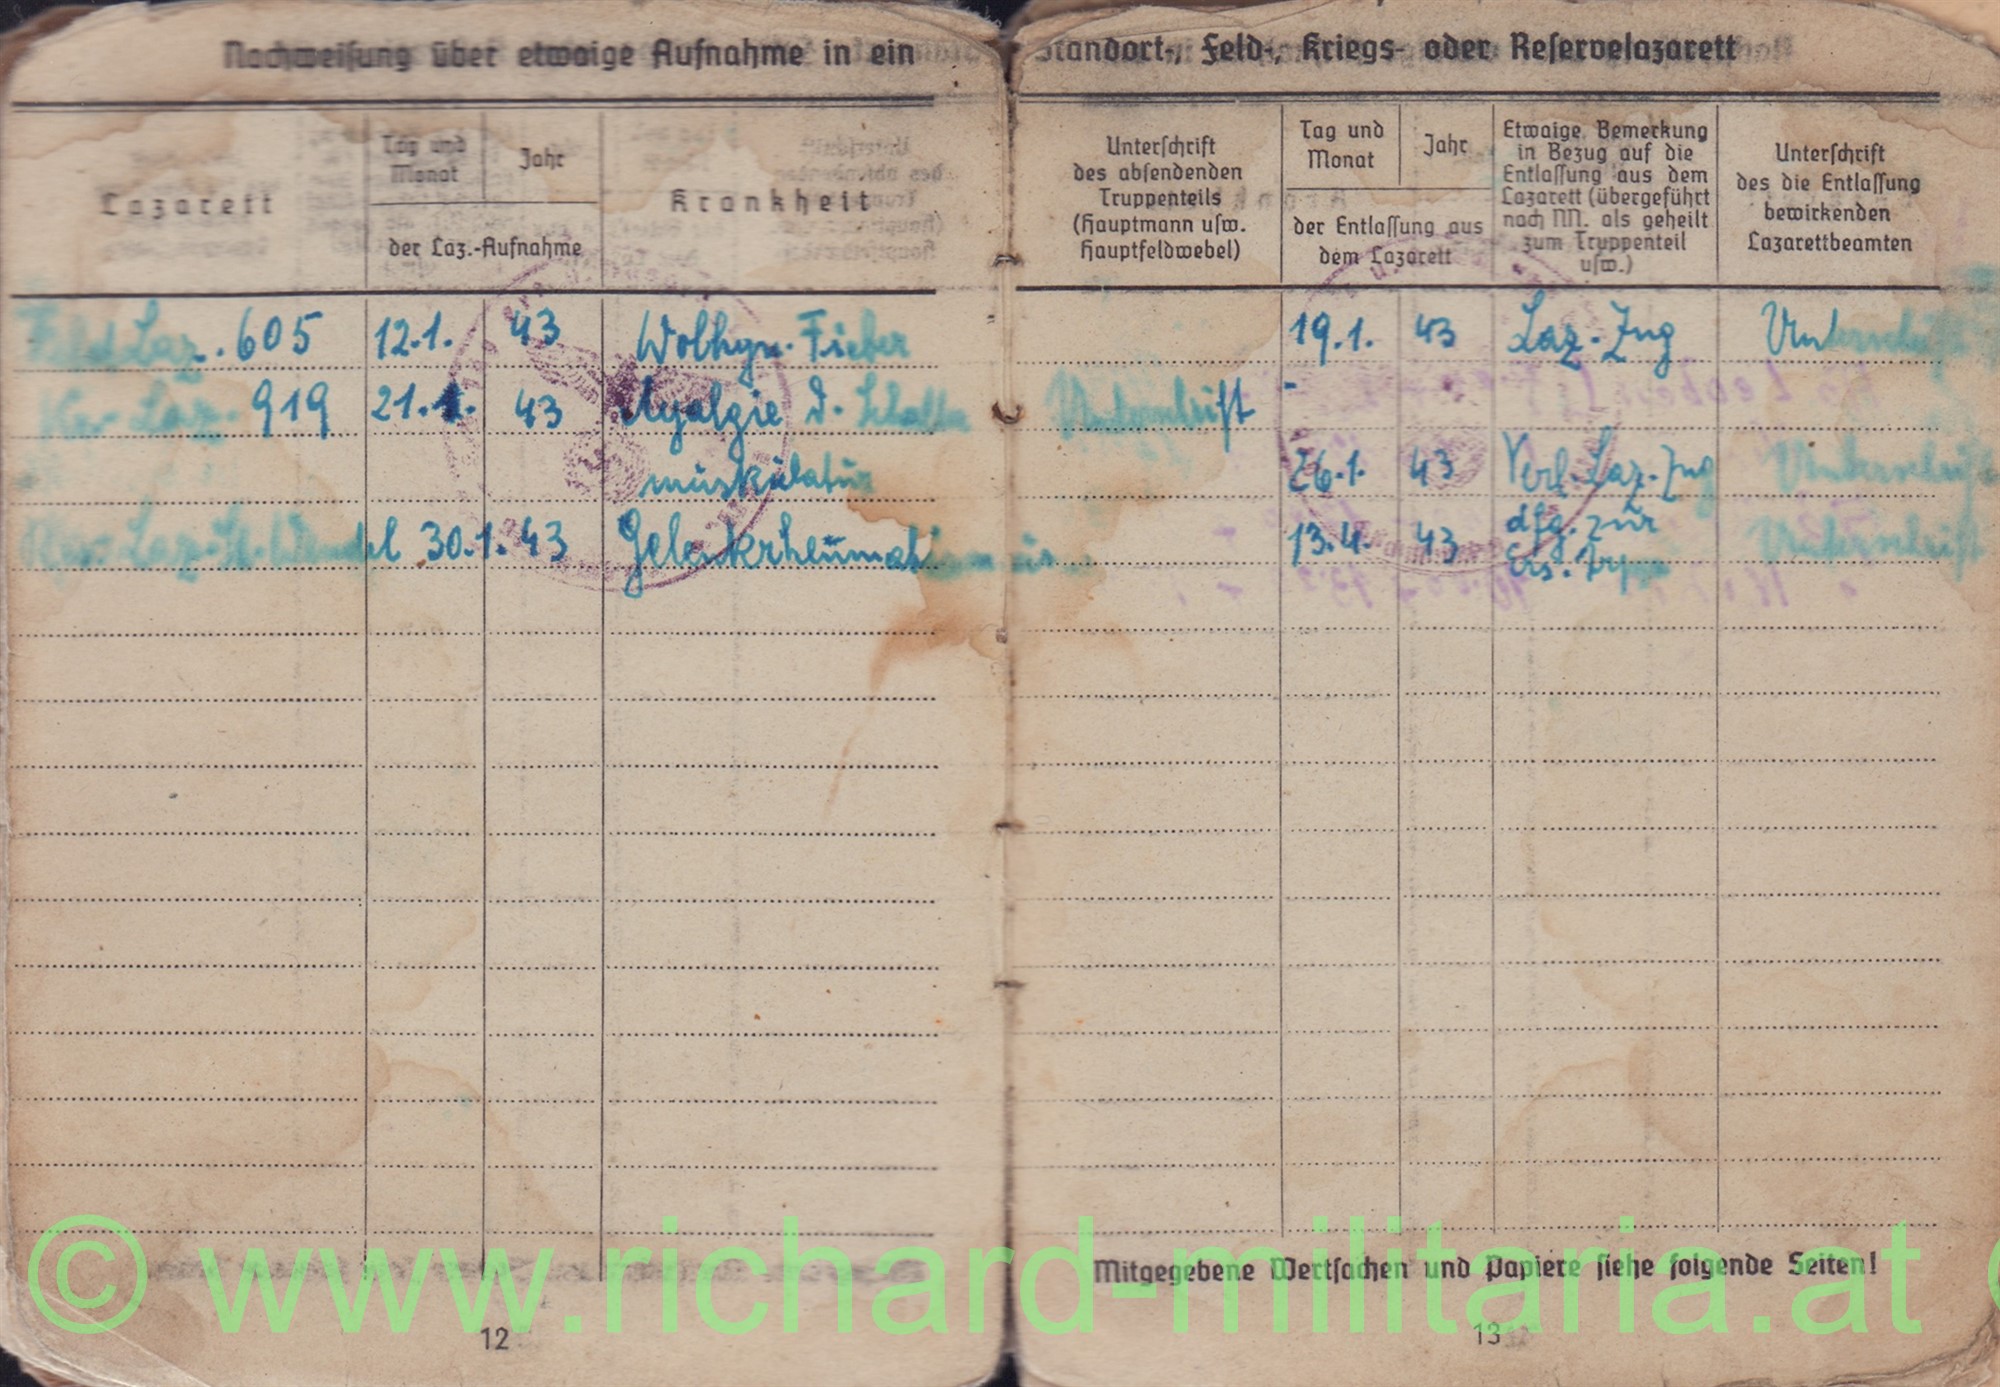 Nachweisung über etwaige Aufnahme in ein
Lazarett
Tag und
Monat
Jahr
der Laz.-Aufnahme
Krankheit
Feld Laz. 605 12.1. 43 Wolhyn. Fieber
Kr. Laz. 919 21.1. 43 Myalgie d. Schulter
muskulatur
Res. Laz. St. Wendel 30.1. 43 Gelenkrheumatismus
12
Standort-, Feld-, Kriegs- oder Reservelazarett
Unterschrift
des absendenden
Truppenteils
(Hauptmann usw.
Hauptfeldwebel)
Tag und
Monat
Jahr
der Entlassung aus
dem Lazarett
Etwaige Bemerkung
in Bezug auf die
Entlassung aus dem
Lazarett (übergeführt
nach NN. als geheilt
zum Truppenteil
usw.)
Unterschrift
des die Entlassung
bewirkenden
Lazarettbeamten
19.1. 43 Laz.-Zug Unterschrift
Unterschrift -
26.1. 43 Verl. Laz.-Zug Unterschrift
13.4. 43 dfg. zur Unterschrift
Ers. Trp.
Mitgegebene Wertsachen und Papiere siehe folgende Seiten!
13
© www.richard-militaria.at ©